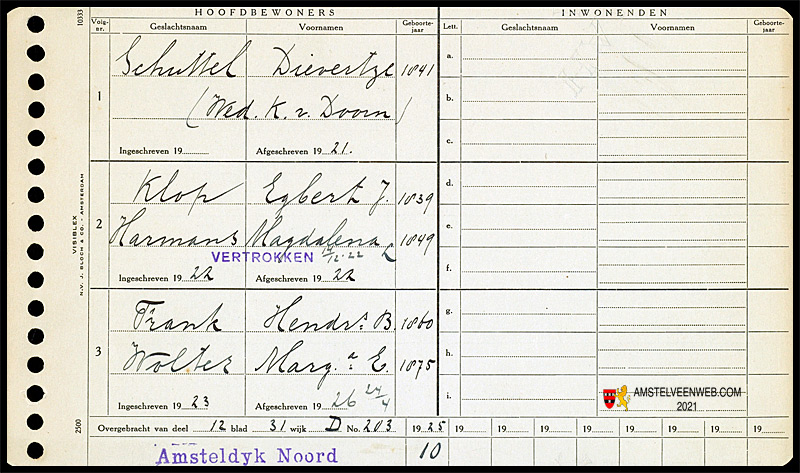 HOOFDBEWONERS
INWONENDEN
10333
Volg-nr. Geslachtsnaam Voornamen Geboorte-jaar
Lett. Geslachtsnaam Voornamen Geboorte-jaar
1
Schuttel Dievertje 1841
(Wed. K. v. Doorn)
Ingeschreven 19 Afgeschreven 19 21.
2
Klop Egbert J. 1839
Harmans Magdalena 1849
VERTROKKEN
Ingeschreven 19 22 Afgeschreven 19 22
3
Frank Hendrs. B. 1860
Wolter Marg.a E. 1875
Ingeschreven 19 23 Afgeschreven 19 26 24/4
a.
b.
c.
d.
e.
f.
g.
h.
i.
VISIBLEX
N.V. J. BLOCH & CO. - AMSTERDAM
2500
AMSTELVEENWEB.COM
2021
Overgebracht van deel 12 blad 31 wijk D No. 203 1925 19 19 19 19 19 19 19 19
Amsteldyk Noord 10